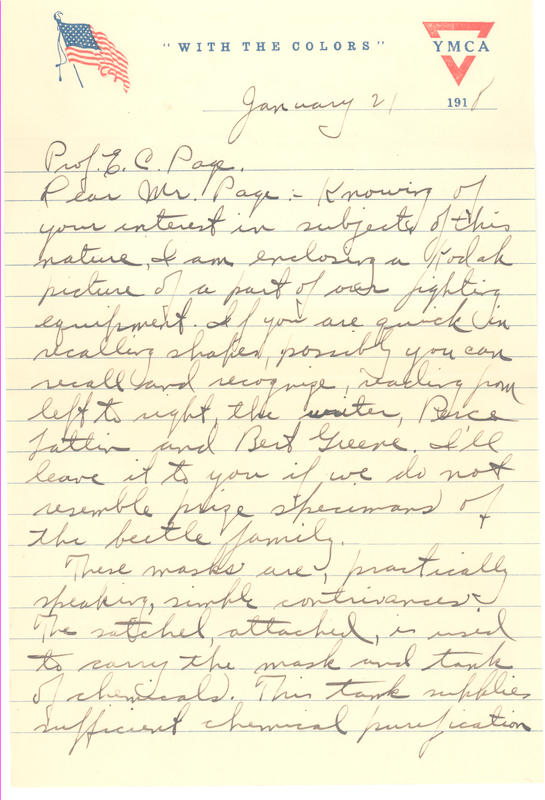 "WITH THE COLORS"
YMCA
January 21 1918
Prof. E. C. Page.
Dear Mr. Page:- Knowing of
your interest in subjects of this
nature, I am enclosing a Kodak
picture of a part of our fighting
equipment. If you are quick in
recalling shapes, possibly you can
recall and recognize, reading from
left to right, the writer, Perce
Lattin and Bert Greene. I'll
leave it to you if we do not
resemble prize specimans of
the beetle family.
These masks are, practically
speaking, simple contrivances-
The satchel, attached, is used
to carry the mask and tank
of chemicals. This tank supplies
sufficient chemical purification